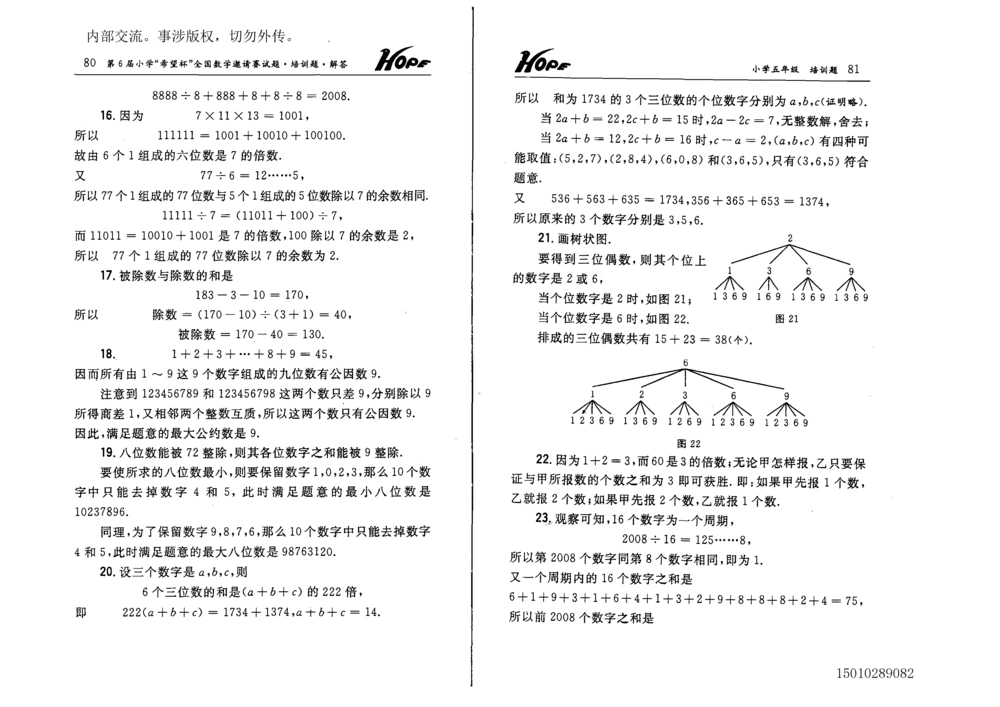 内部交流。事涉版权，切勿外传。
80 第6届小学“希望杯”全国数学邀请赛试题·培训题·解答
HOPE
8888÷8+888+8+8÷8=2008.
16.因为 7×11×13=1001,
所以 111111=1001+10010+100100.
故由6个1组成的六位数是7的倍数.
又 77÷6=12……5,
所以77个1组成的77位数与5个1组成的5位数除以7的余数相同.
11111÷7=(11011+100)÷7,
而11011=10010+1001是7的倍数,100除以7的余数是2,
所以 77个1组成的77位数除以7的余数为2.
17.被除数与除数的和是
183-3-10=170,
所以 除数=(170-10)÷(3+1)=40,
被除数=170-40=130.
18. 1+2+3+…+8+9=45,
因而所有由1~9这9个数字组成的九位数有公因数9.
注意到123456789和123456798这两个数只差9,分别除以9
所得商差1,又相邻两个整数互质,所以这两个数只有公因数9.
因此,满足题意的最大公约数是9.
19.八位数能被72整除,则其各位数字之和能被9整除.
要使所求的八位数最小,则要保留数字1,0,2,3,那么10个数
字中只能去掉数字4和5,此时满足题意的最小八位数是
10237896.
同理,为了保留数字9,8,7,6,那么10个数字中只能去掉数字
4和5,此时满足题意的最大八位数是98763120.
20.设三个数字是a,b,c,则
6个三位数的和是(a+b+c)的222倍,
即 222(a+b+c)=1734+1374,a+b+c=14.
HOPE
小学五年级 培训题 81
所以 和为1734的3个三位数的个位数字分别为a,b,c(证明略).
当2a+b=22,2c+b=15时,2a-2c=7,无整数解,舍去;
当2a+b=12,2c+b=16时,c-a=2,(a,b,c)有四种可
能取值:(5,2,7),(2,8,4),(6,0,8)和(3,6,5),只有(3,6,5)符合
题意.
又 536+563+635=1734,356+365+653=1374,
所以原来的3个数字分别是3,5,6.
21.画树状图.
要得到三位偶数,则其个位上
的数字是2或6,
当个位数字是2时,如图21;
当个位数字是6时,如图22.
排成的三位偶数共有15+23=38(个).
2
1 3 6 9
1 3 6 9 1 6 9 1 3 6 9 1 3 6 9
图21
6
1 2 3 6 9
1 2 3 6 9 1 3 6 9 1 2 6 9 1 2 3 6 9 1 2 3 6 9
图22
22.因为1+2=3,而60是3的倍数;无论甲怎样报,乙只要保
证与甲所报数的个数之和为3即可获胜.即:如果甲先报1个数,
乙就报2个数;如果甲先报2个数,乙就报1个数.
23.观察可知,16个数字为一个周期,
2008÷16=125……8,
所以第2008个数字同第8个数字相同,即为1.
又一个周期内的16个数字之和是
6+1+9+3+1+6+4+1+3+2+9+8+8+8+2+4=75,
所以前2008个数字之和是
15010289082